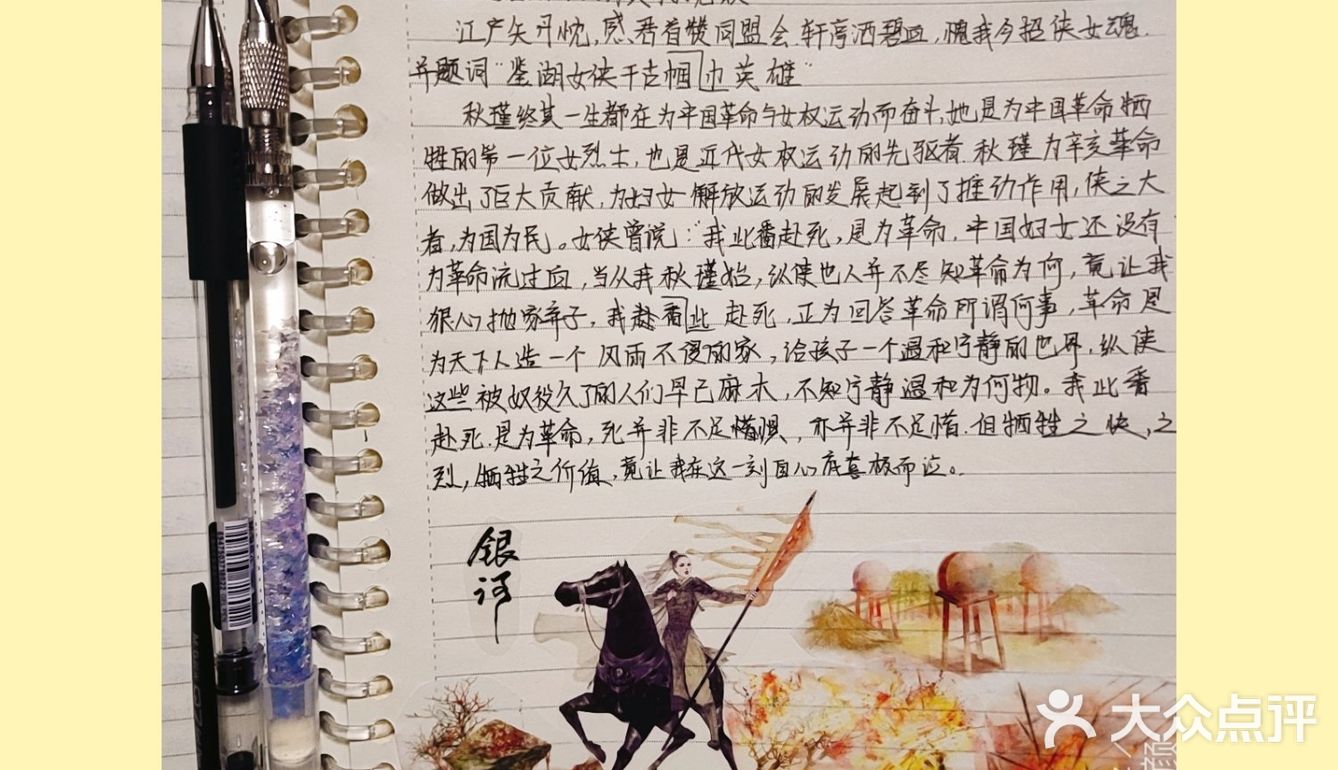 江户矢丹忱,感君首赞同盟会.轩亭洒碧血,愧我今招侠女魂.
并题词"鉴湖女侠千古帼巾英雄"
秋瑾终其一生都在为中国革命与女权运动而奋斗,她是为中国革命牺
牲的第一位女烈士,也是近代女权运动的先驱者.秋瑾为辛亥革命
做出了巨大贡献,为妇女解放运动的发展起到了推动作用,侠之大
者,为国为民。女侠曾说:"我此番赴死,是为革命.中国妇女还没有
为革命流过血,当从我秋瑾始,纵使世人并不尽知革命为何,竟让我
狠心抛家弃子,我赴番此赴死,正为回答革命所谓何事,革命是
为天下人造一个风雨不侵的家,给孩子一个温和宁静的世界,纵使
这些被奴役久了的人们早已麻木,不知宁静温和为何物。我此番
赴死.是为革命,死并非不足惜惧,亦并非不足惜.但牺牲之快,之
烈,牺牲之价值,竟让我在这一刻自心底喜极而泣。
银河
大众点评
颜